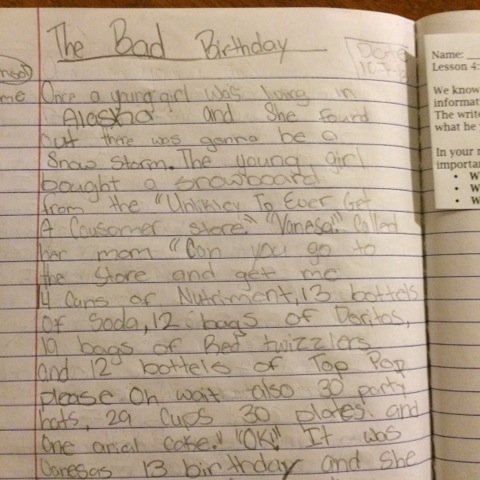 The Bad Birthday
Date
Once a young girl was living in
Alaska and she found
out there was gonna be a
Snow storm. The young girl
bought a snowboard
from the "Unlikley To Ever Get
A Cousomer store." "Vanesa!" Called
her mom "Can you go to
the Store and get me
4 Cans of Nutriment, 13 bottels
of Soda, 12 bags of Doritos,
bags of Red twizzlers
and 12 bottels of Top Pop
please Oh wait also 30 party
hats, 29 Cups 30 plates and
One arial cake." "OK!" It was
Vanesas 13 birthday and she
me
Name:
Lesson 4:
We know
informat
The write
what he
In your
importa
• W
• W
• W